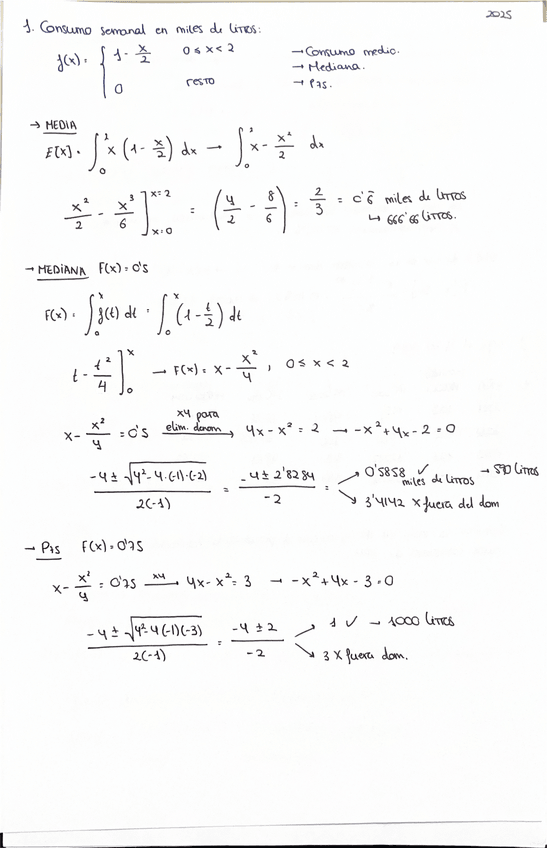 2025
1. Consumo semanal en miles de litros:
f(x) = { 1 - x/2   0 ≤ x < 2
0   resto
→ Consumo medio.
→ Mediana.
→ P75.
→ MEDIA
E[x] = ∫₀² x (1 - x/2) dx → ∫₀² x - x²/2 dx
x²/2 - x³/6 ]ₓ₌₀ˣ⁼² = (4/2 - 8/6) = 2/3 = 0'6̄ miles de litros
↳ 666'66 litros.
→ MEDIANA F(x) = 0'5
F(x) = ∫₀ˣ f(t) dt = ∫₀ˣ (1 - t/2) dt
t - t²/4 ]₀ˣ → F(x) = x - x²/4 , 0 ≤ x < 2
x - x²/4 = 0'5 —x4 para elim. denom→ 4x - x² = 2 → -x² + 4x - 2 = 0
(-4 ± √(4² - 4·(-1)·(-2))) / 2(-1) = (-4 ± 2'8284) / -2 = ↗ 0'5858 ✓ miles de litros → 590 litros
↘ 3'4142 X fuera del dom
→ P75 F(x) = 0'75
x - x²/4 = 0'75 —x4→ 4x - x² = 3 → -x² + 4x - 3 = 0
(-4 ± √(4² - 4(-1)(-3))) / 2(-1) = (-4 ± 2) / -2 ↗ 1 ✓ → 1000 litros
↘ 3 X fuera dom.